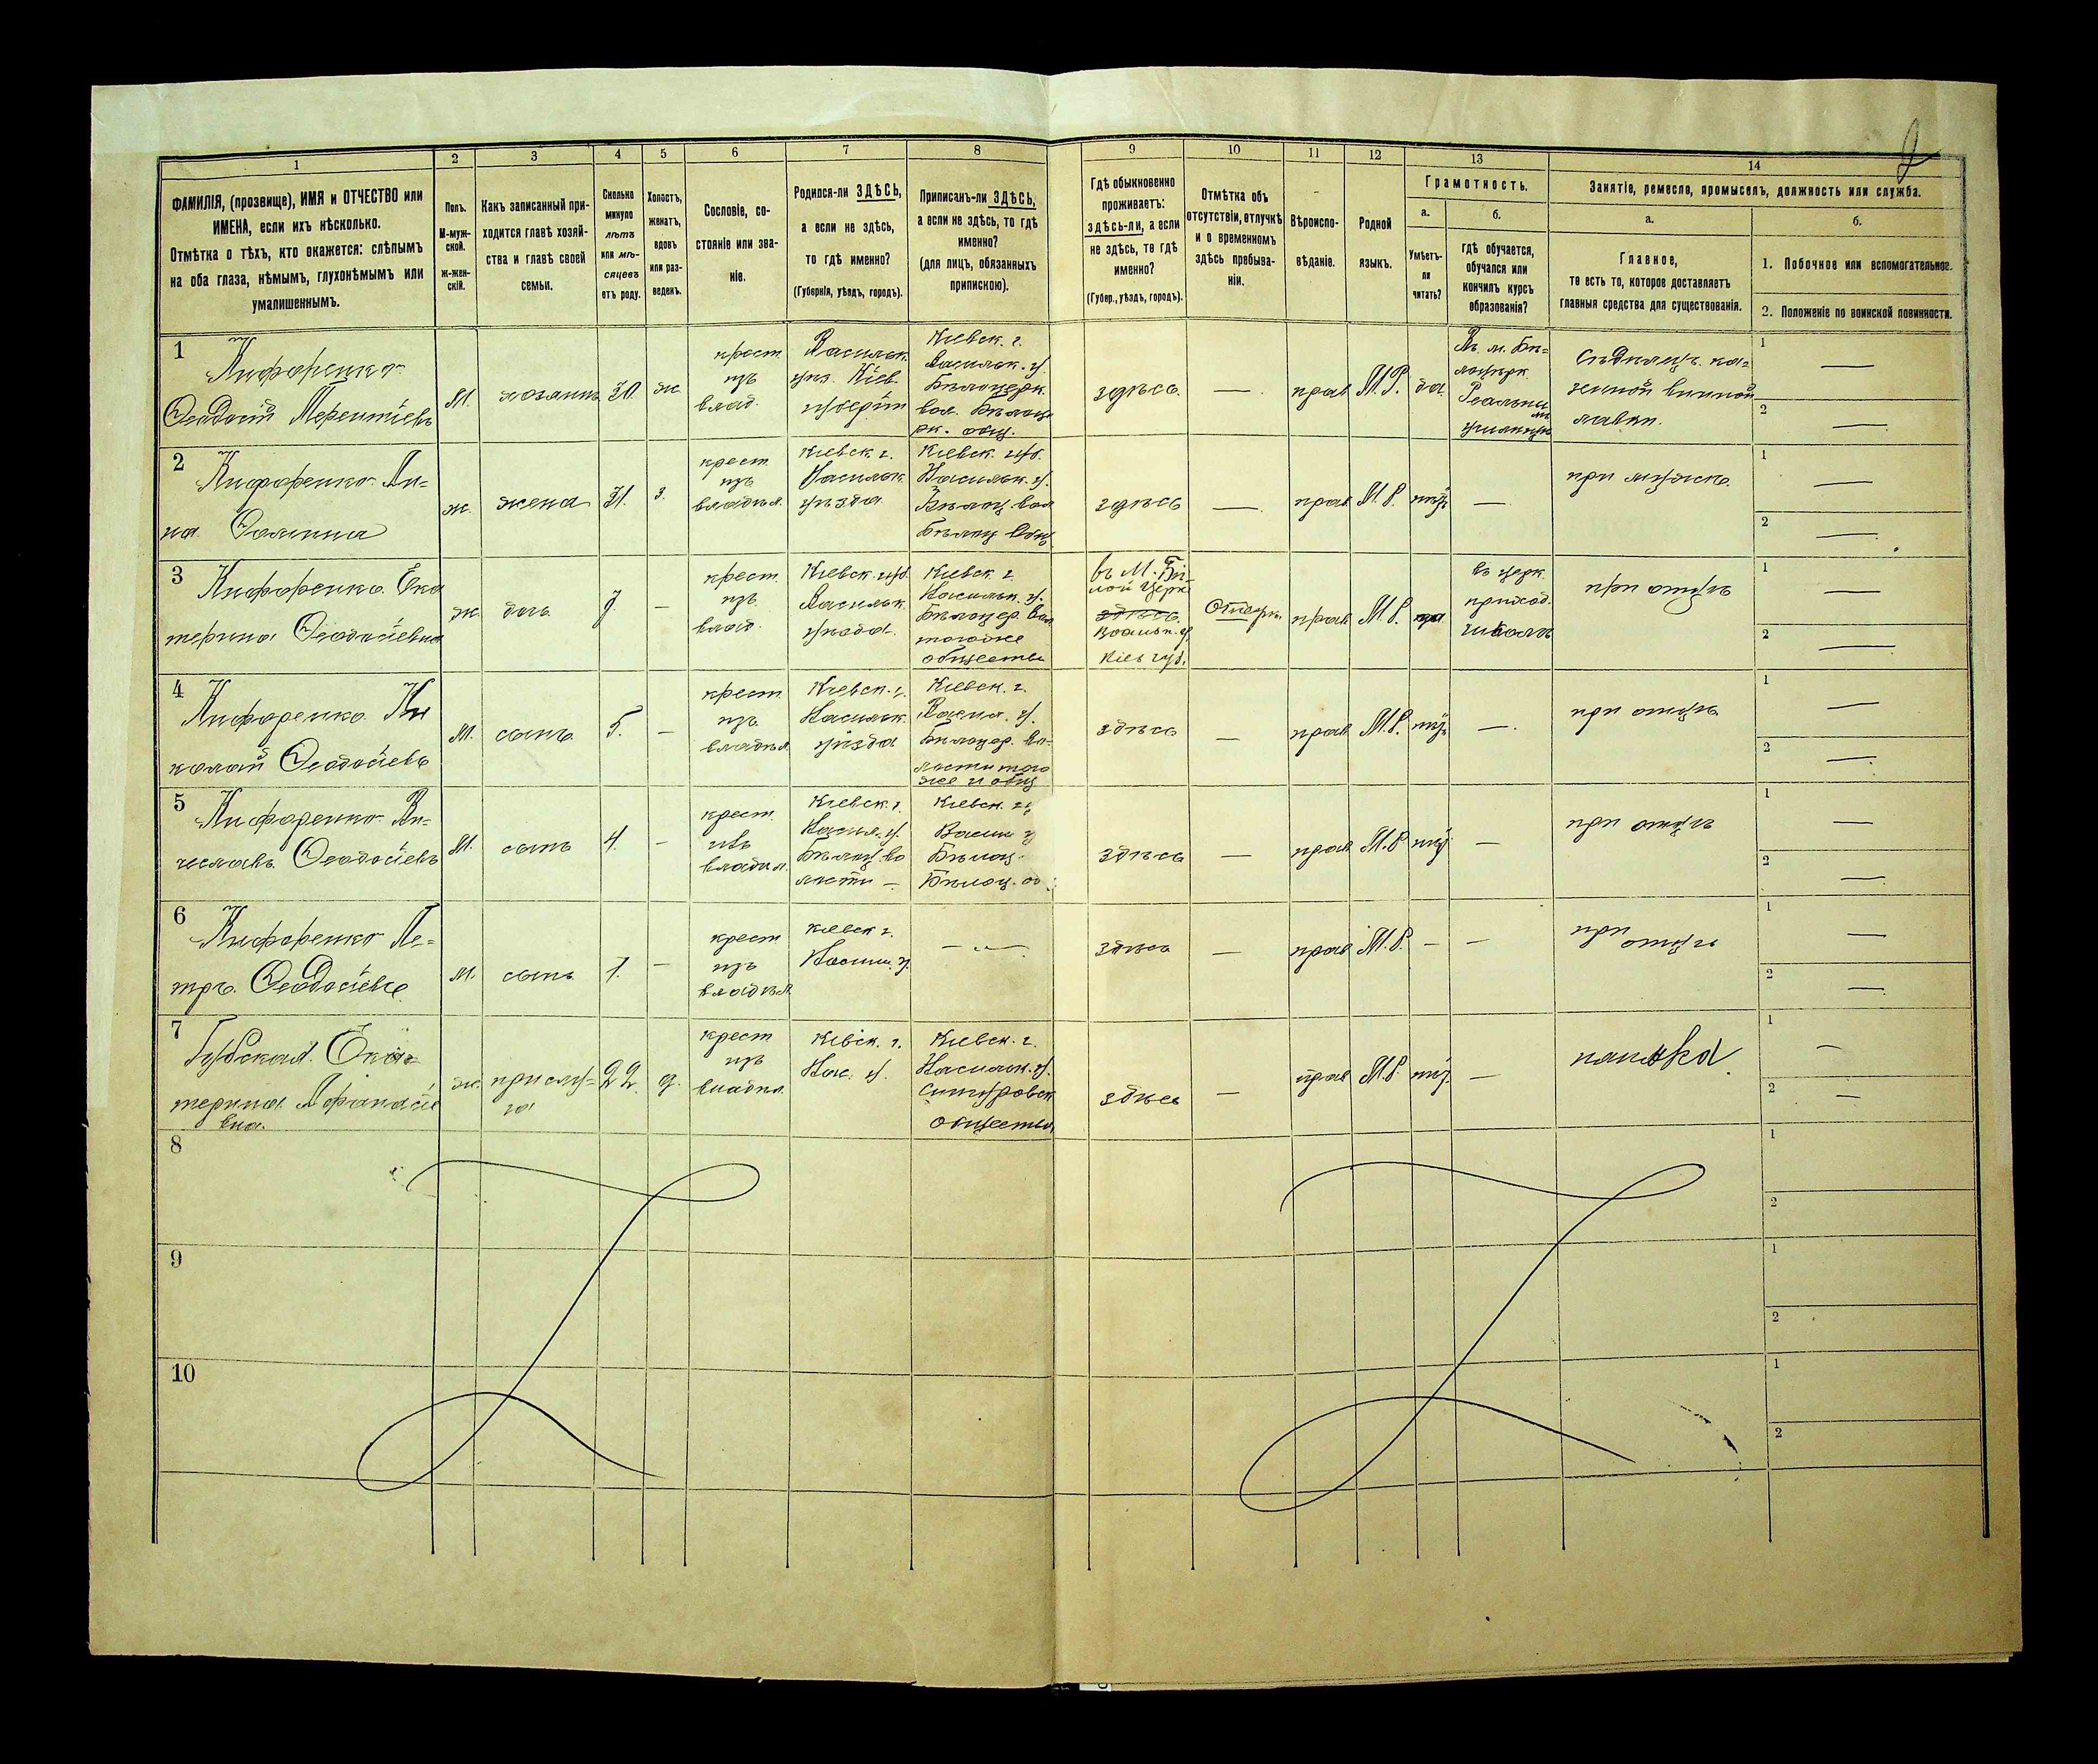 2
1 2 3 4 5 6 7 8 9 10 11 12 13 14
ФАМИЛІЯ, (прозвище), ИМЯ и ОТЧЕСТВО или
ИМЕНА, если ихъ нѣсколько.
Отмѣтка о тѣхъ, кто окажется: слѣпымъ
на оба глаза, нѣмымъ, глухонѣмымъ или
умалишеннымъ.
Полъ.
М-муж-
ской.
ж-жен-
скій.
Какъ записанный при-
ходится главѣ хозяй-
ства и главѣ своей
семьи.
Сколько
минуло
лѣтъ
или мѣ-
сяцевъ
отъ роду.
Холостъ,
женатъ,
вдовъ
или раз-
веденъ.
Сословіе, со-
стояніе или зва-
ніе.
Родился-ли ЗДѢСЬ,
а если не здѣсь,
то гдѣ именно?
(Губернія, уѣздъ, городъ).
Приписанъ-ли ЗДѢСЬ,
а если не здѣсь, то гдѣ
именно?
(для лицъ, обязанныхъ
припискою).
Гдѣ обыкновенно
проживаетъ:
здѣсь-ли, а если
не здѣсь, то гдѣ
именно?
(Губер., уѣздъ, городъ).
Отмѣтка объ
отсутствіи, отлучкѣ
и о временномъ
здѣсь пребыва-
ніи.
Вѣроиспо-
вѣданіе.
Родной
языкъ.
Грамотность.
а.
Умѣетъ-
ли
читать?
б.
гдѣ обучается,
обучался или
кончилъ курсъ
образованія?
Занятіе, ремесло, промыселъ, должность или служба.
а.
Главное,
то есть то, которое доставляетъ
главныя средства для существованія.
б.
1. Побочное или вспомогательное.
2. Положеніе по воинской повинности.
1
Никифоренко
Феодосій Терентіевъ
М.
хозяинъ
30
ж.
крест.
изъ
влад.
Васильк.
уѣз. Кіев.
губерніи
Кіевск. г.
Васильк. у.
Бѣлоцерк.
вол. Бѣлоце
рк. общ.
здѣсь
—
прав
М.Р.
да.
Въ м. Бѣ-
лоцерк.
Реальн
училищѣ
Сѣдѣлецъ ка-
зенной винной
лавки.
1 —
2 —
2
ж.
жена
31.
з.
крест.
изъ
владѣл.
Кіевск. г.
Васильк.
уѣзда
Кіевск. губ.
Васильк. у.
Бѣлоц. вол
Бѣлоц общ
здѣсь
—
прав.
М.Р.
—
при мужѣ.
1 —
2 —
3
Ека
терина Феодосіевна
ж.
дочь
7
—
крест.
изъ
влад.
Кіевск. губ.
Васильк.
уѣзда.
Кіевск. г.
Васильк. у.
Бѣлоцер. вол
тогоже
общества
въ М. Бѣ-
лой Церк.
здѣсь
Васильк. у.
Кіев. губ.
прав.
М.Р.
въ церк.
приход.
школѣ
при отцѣ
1 —
2 —
4
Ни
колай Феодосіевъ
М.
сынъ
5.
—
крест.
изъ
владѣл.
Кіевск. г.
Васильк.
уѣзда
Кіевск. г.
Васил. у.
Бѣлоцер. во-
лости того
же и общ
здѣсь
—
прав
М.Р.
—
при отцѣ.
1 —
2 —
5
Вя-
чеславъ Феодосіевъ
М.
сынъ
4.
—
крест.
изъ
владѣл.
Кіевск. г.
Васил. у.
Бѣлоц. во
лости —
Кіевск. г
Васил у
Бѣлоц.
Бѣлоц. об
здѣсь
—
прав.
М.Р
—
при отцѣ
1 —
2 —
6
Пе-
тръ Феодосіевъ
М.
сынъ
1.
—
крест
изъ
владѣл.
Кіевск г.
Васил. у.
— „ —
здѣсь
—
прав
М.Р.
— —
при
отцѣ
1 —
2 —
7
Губская Ека-
терина Афанасіе
вна.
ж.
прислу-
га
22.
д.
крест
изъ
владѣл.
Кіевск. г.
Вас. у.
Кіевск. г.
Васильк. у.
общества
здѣсь
—
прав
М.Р.
—
нянька
1 —
2 —
8
1
2
9
1
2
10
1
2